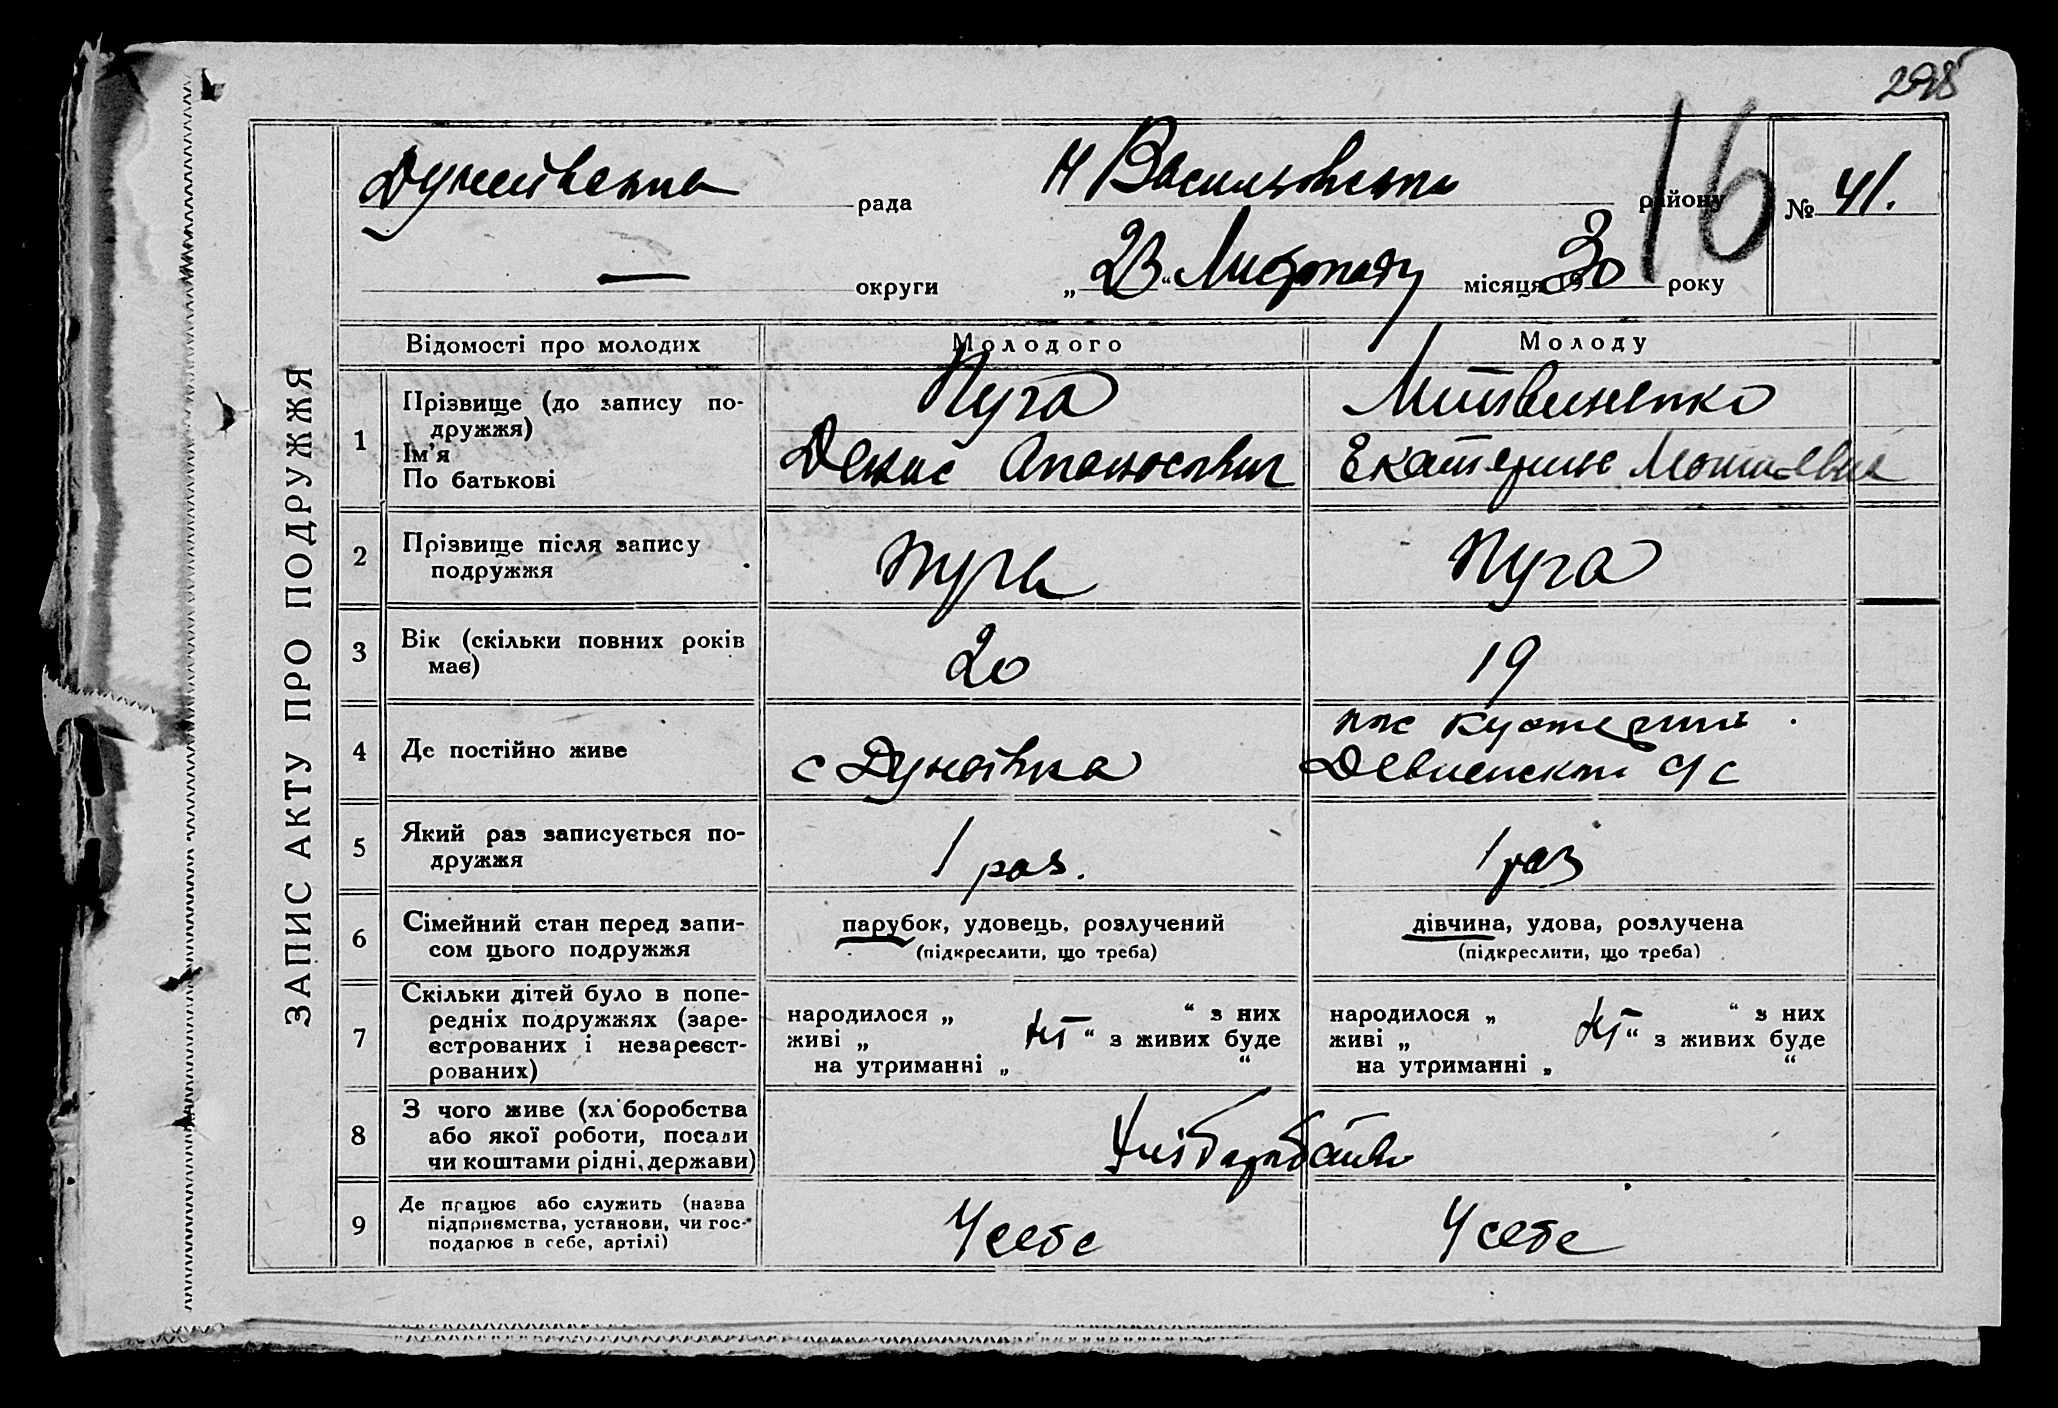 298
16
Дунаївська рада
Н Васильовського району
№ 41.
— округи
„ 23 “ Листопаду місяця 1930 року
ЗАПИС АКТУ ПРО ПОДРУЖЖЯ
Відомості про молодих
Молодого
Молоду
1
Прізвище (до запису по-
дружжя)
Ім'я
По батькові
Пуга
Денис Опанасович
Литвиненко
Екатерина
2
Прізвище після запису
подружжя
Пуга
Пуга
3
Вік (скільки повних років
має)
20
19
4
Де постійно живе
с Дунаївка
с/с
5
Який раз записується по-
дружжя
1 раз.
1 раз
6
Сімейний стан перед запи-
сом цього подружжя
парубок, удовець, розлучений
(підкреслити, що треба)
дівчина, удова, розлучена
(підкреслити, що треба)
7
Скільки дітей було в попе-
редніх подружжях (заре-
єстрованих і незареєст-
рованих)
народилося „ “ з них
живі „ ні “ з живих буде
на утриманні „ “
народилося „ “ з них
живі „ ні “ з живих буде
на утриманні „ “
8
З чого живе (хліборобства
або якої роботи, посади
чи коштами рідні, держави)
Хліборобство
9
Де працює або служить (назва
підприємства, установи, чи гос-
подарює в себе, артілі)
У себе
У себе